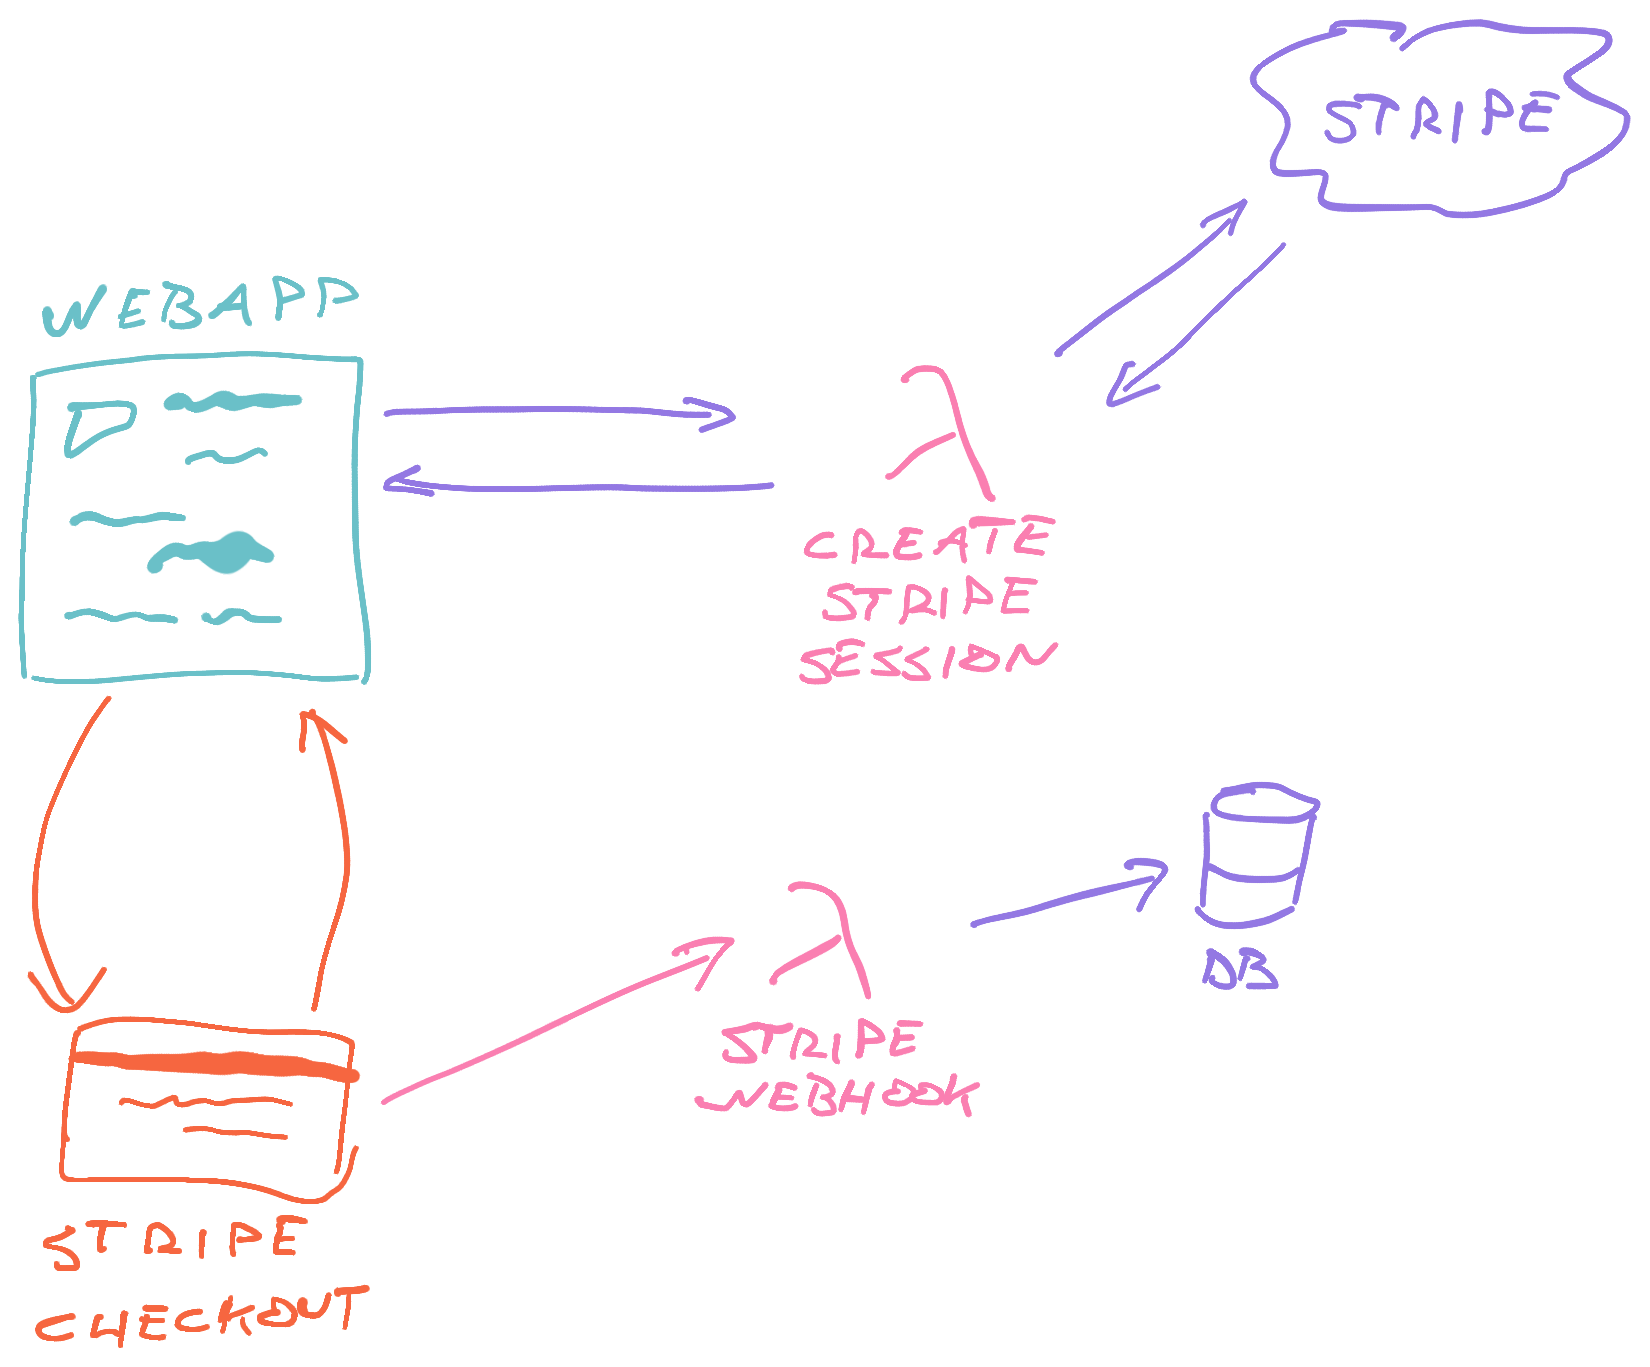 STRIPE
WEBAPP
CREATE
STRIPE
SESSION
DB
STRIPE
WEBHOOK
STRIPE
CHECKOUT